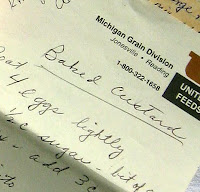 Michigan Grain Division
Jonesville - Reading
1-800-322-1658
UNIT
FEEDS
Baked Custard
Beat 4 eggs lightly
sugar - bit of
- add 3 c